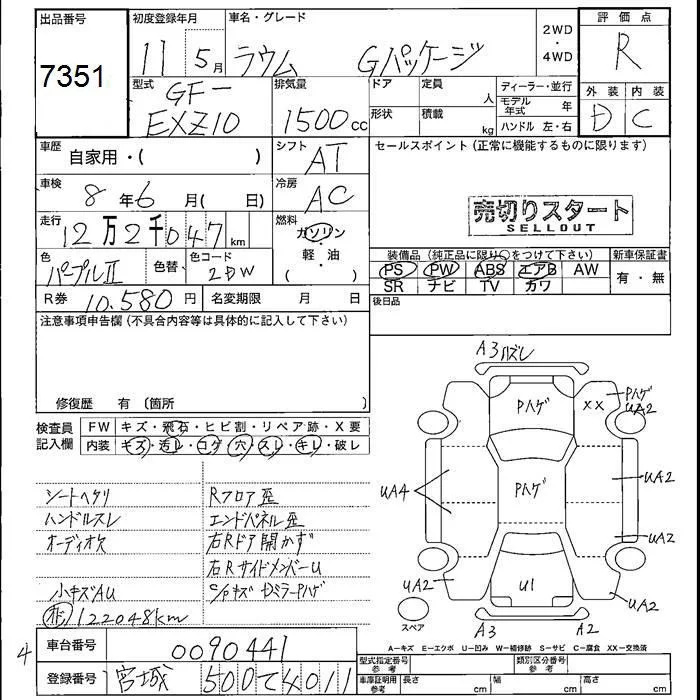 出品番号
7351
初度登録年月
11 5月
車名・グレード
ラウム Gパッケージ
2WD・4WD
評価点
R
型式
GF-
EXZ10
排気量
1500cc
ドア 定員 人
形状 積載 kg
ディーラー・並行
モデル年式 年
ハンドル 左・右
外装 内装
D C
車歴 自家用・( )
シフト AT
セールスポイント(正常に機能するものに限ります)
車検 8年6月( 日)
冷房 AC
売切りスタート
SELLOUT
走行 12万2千047km
燃料 ガソリン・軽・油 ( )
色 パープルII 色替 色コード
装備品(純正品に限り○をつけて下さい) 新車保証書
PS PW ABS エアB AW 有・無
SR ナビ TV カワ
R券 10,580円 名変期限 月 日
後日品
注意事項申告欄(不具合内容等は具体的に記入して下さい)
修復歴 有 〔箇所 〕
検査員記入欄
FW キズ・飛石・ヒビ割・リペア跡・X要
内装 キズ・汚レ・コゲ・穴・スレ・キレ・破レ
シートヘタリ Rフロア歪
ハンドルスレ エンドパネル歪
オーディオ欠 右Rドア開かず
右RサイドメンバーU
小キズAU
122048km
A3ハズレ
Pハゲ
XX
Pハゲ
UA2
UA4
Pハゲ
UA2
UA2
UA2
U1
UA2
スペア
A3
A2
A-キズ E-エクボ U-凹み W-補修跡 S-サビ C-腐食 XX-交換済
4
車台番号 0090441
登録番号 宮城 500て4011
型式指定番号 参考 類別区分番号 参考
車庫証明用参考 長さ cm 幅 cm 高さ cm